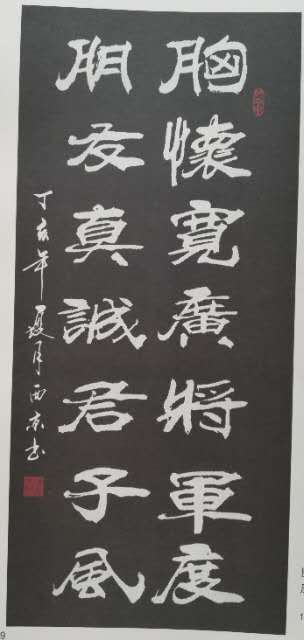 胸懷寬廣將軍度
朋友真誠君子風
丁亥年夏月西京书
9